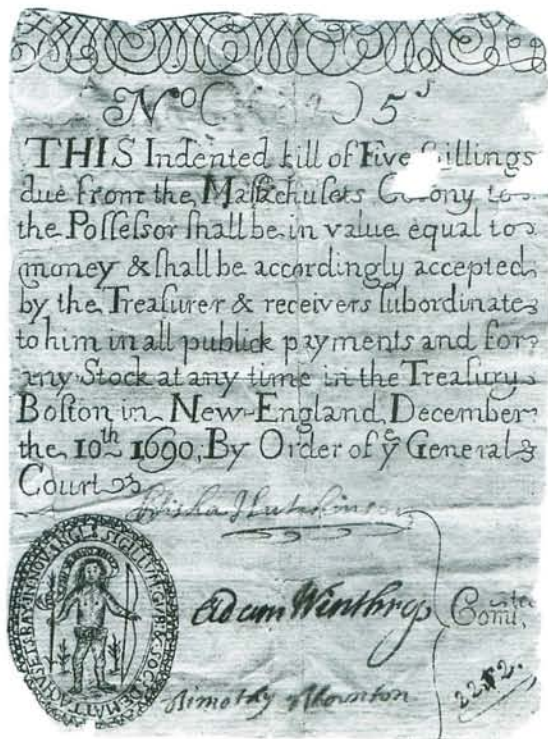 No ( ) 5s
THIS Indented bill of Five Shillings
due from the Maſſachuſets Colony to
the Poſſeſſor ſhall be in value equal to
money & ſhall be accordingly accepted
by the Treaſurer & receivers ſubordinate
to him in all publick payments and for
any Stock at any time in the Treaſury
Boſton in New-England, December
the 10th 1690, By Order of ye General
Court
Elisha Hutchinson
Adam Winthrop
Timothy Thornton
Comittee
SIGILLVM GVB & SOC DE MATTACHVSETS BAY IN NOV ANGL